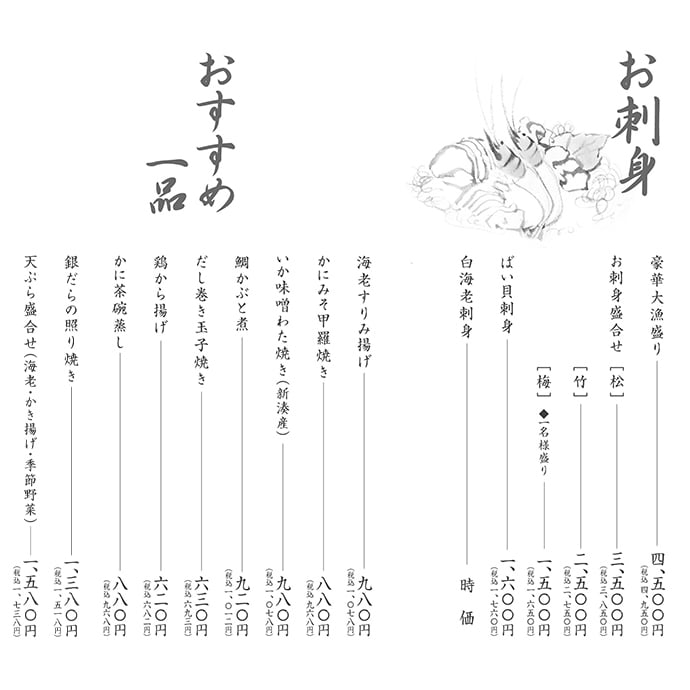 お刺身
豪華大漁盛り 四、五〇〇円
(税込 四、九五〇円)
お刺身盛合せ [松] 三、五〇〇円
(税込 三、八五〇円)
[竹] 二、五〇〇円
(税込 二、七五〇円)
[梅] ◆一名様盛り 一、五〇〇円
(税込 一、六五〇円)
ばい貝刺身 一、六〇〇円
(税込 一、七六〇円)
白海老刺身 時価
おすすめ
一品
海老すりみ揚げ 九八〇円
(税込 一、〇七八円)
かにみそ甲羅焼き 八八〇円
(税込 九六八円)
いか味噌わた焼き(新湊産) 九八〇円
(税込 一、〇七八円)
鯛かぶと煮 九二〇円
(税込 一、〇一二円)
だし巻き玉子焼き 六三〇円
(税込 六九三円)
鶏から揚げ 六二〇円
(税込 六八二円)
かに茶碗蒸し 八八〇円
(税込 九六八円)
銀だらの照り焼き 一、三八〇円
(税込 一、五一八円)
天ぷら盛合せ(海老・かき揚げ・季節野菜) 一、五八〇円
(税込 一、七三八円)